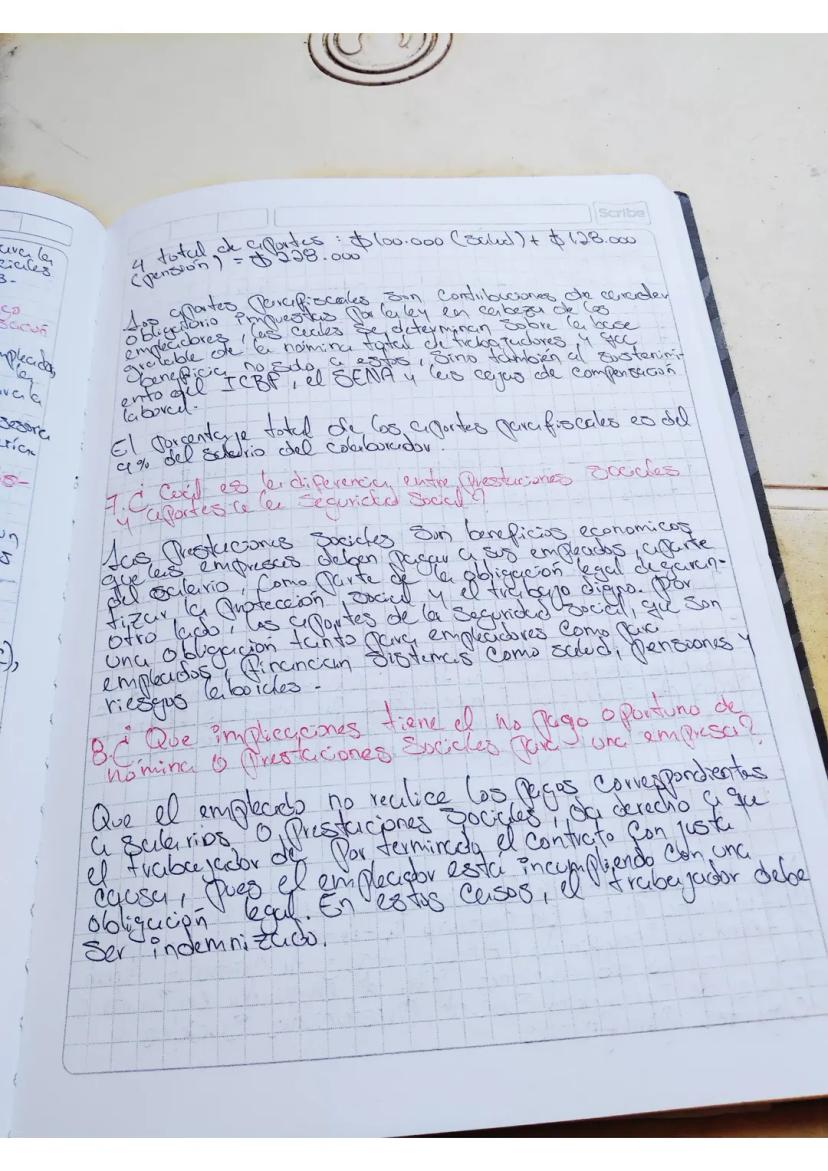 Scribe
4 total de aportes: $100.000 (salud) + $128.000
(pensión) = $228.000
Los aportes parafiscales son contribuciones de caracter
obligatorio impuestas por la ley en cabeza de los
empleadores, las cuales se determinan sobre la base
gravable de la nómina total de trabajadores y que
beneficia no solo a estos, sino también al sostenimi-
ento del ICBF, el SENA y las cajas de compensación
laboral.
El porcentaje total de los aportes parafiscales es del
9% del salario del colaborador.
7. ¿Cuál es la diferencia entre prestaciones sociales
y aportes a la seguridad social?
Las prestaciones sociales son beneficios economicos
que las empresas deben pagar a sus empleados, aparte
del salario, como parte de la obligación legal de garan-
tizar la protección social y el trabajo digno. Por
otro lado, los aportes de la seguridad social, que son
una obligación tanto para empleadores como para
empleados, financian sistemas como salud, pensiones y
riesgos laborales.
8. ¿Que implicaciones tiene el no pago oportuno de
nómina o prestaciones sociales para una empresa?
Que el empleado no realice los pagos correspondientes
a salarios o prestaciones sociales, da derecho a que
el trabajador de por terminado el contrato con justa
causa, pues el empleador está incumpliendo con una
obligación legal. En estos casos, el trabajador debe
ser indemnizado.